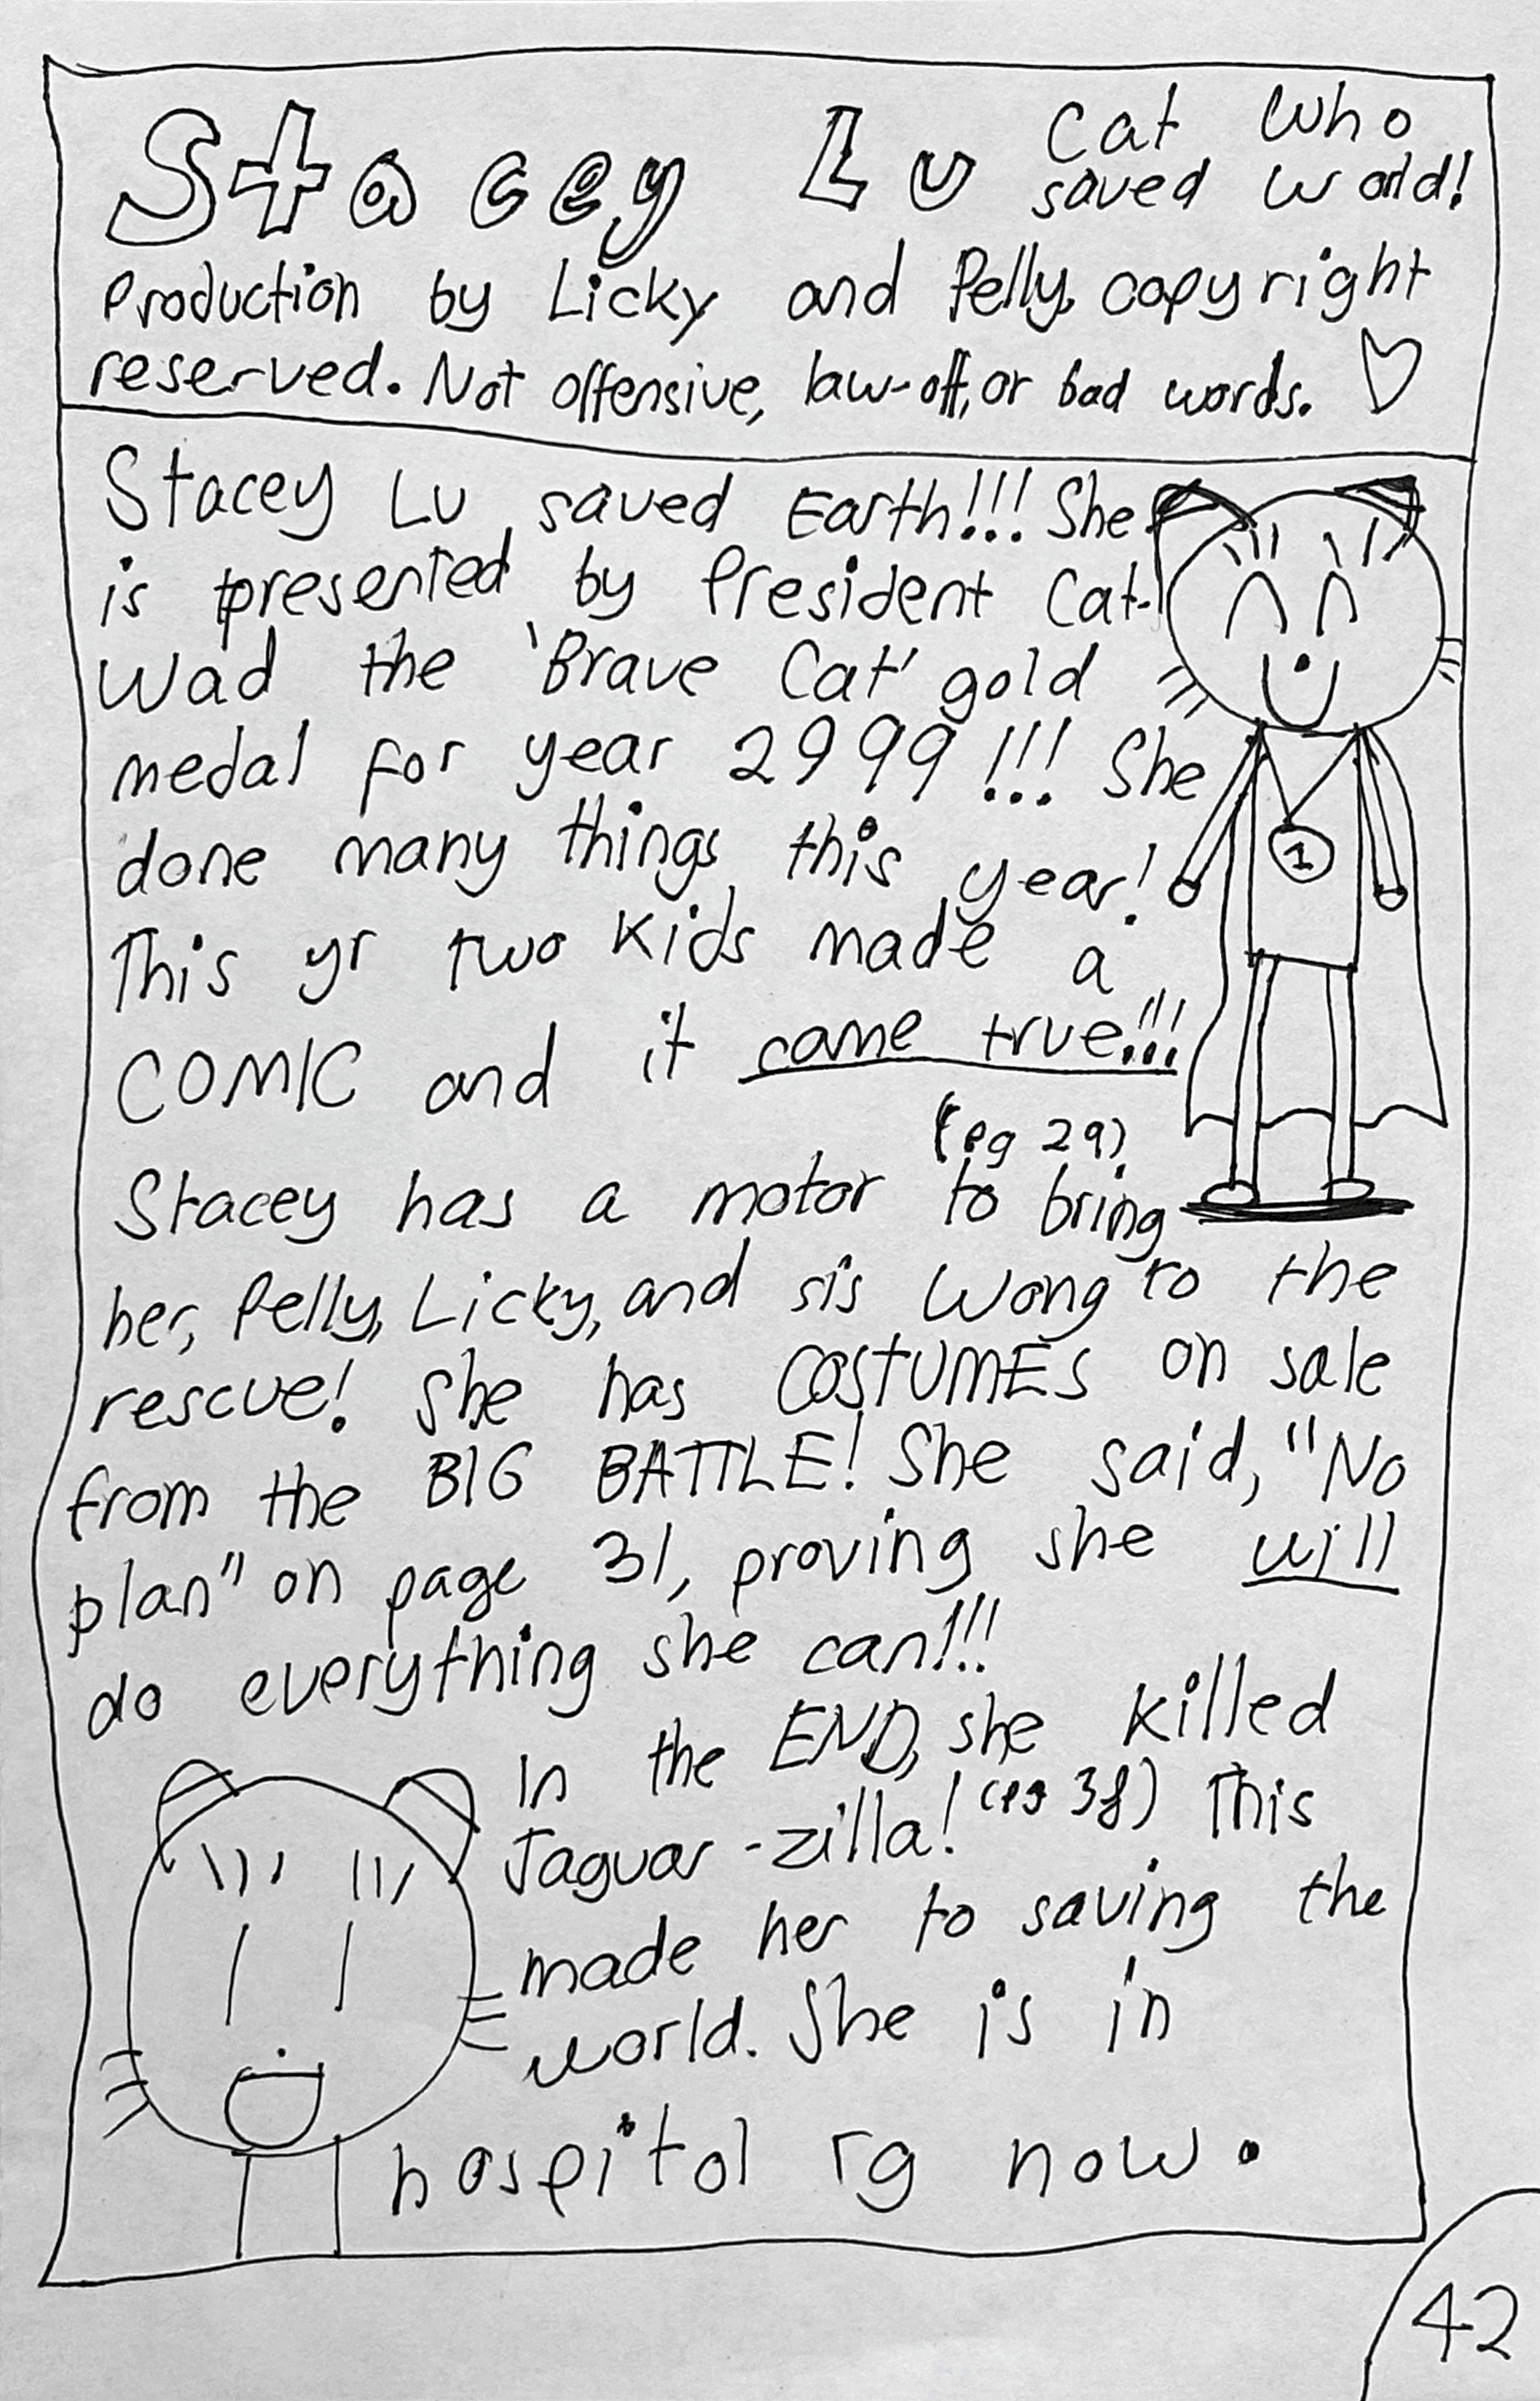 Stacey Lu Cat who
saved world!
Production by Licky and Pelly, copyright
reserved. Not offensive, law-off, or bad words.
Stacey Lu saved Earth!!! She
is presented by President Cat-
Wad the 'Brave Cat' gold
medal for year 2999!!! She
done many things this year!
This yr two kids made a
COMIC and it came true!!!
(pg 29)
Stacey has a motor to bring
her, Pelly, Licky, and sis Wong to the
rescue! She has COSTUMES on sale
from the BIG BATTLE! She said, "No
plan" on page 31, proving she will
do everything she can!!!
In the END, she killed
Jaguar-zilla! (pg 38) This
made her to saving the
world. She is in
hospitol rg now.
1
42